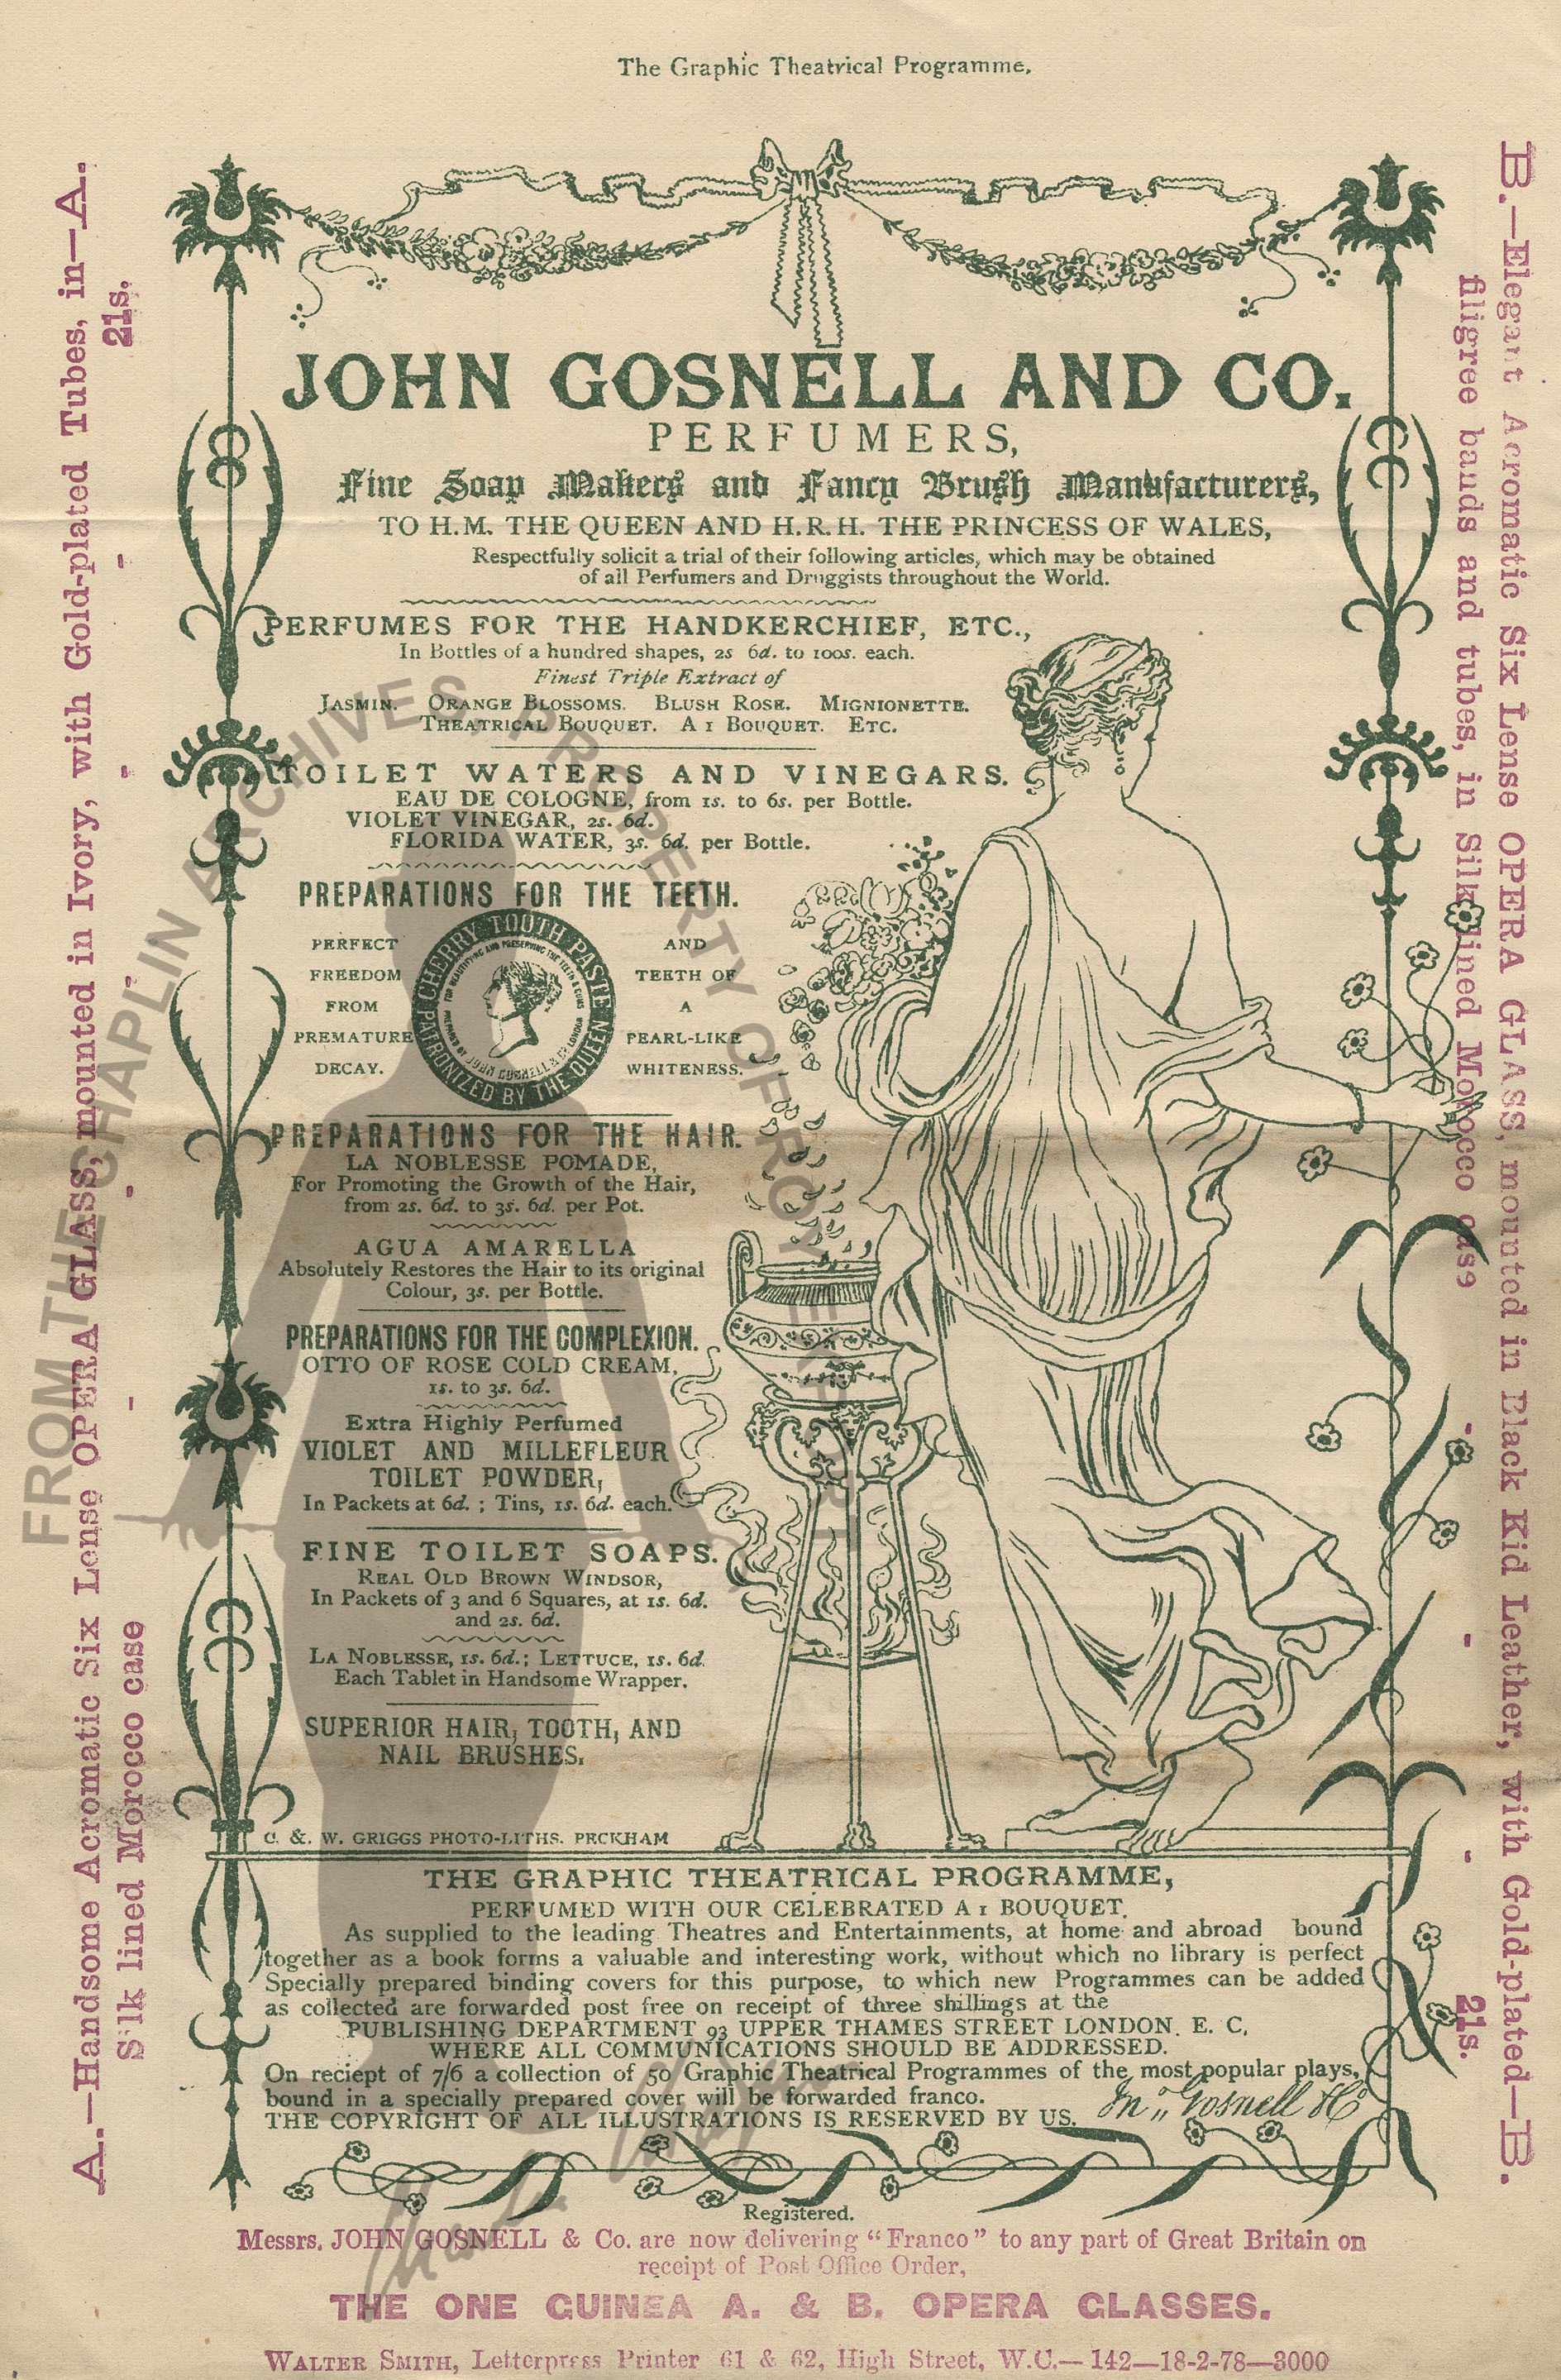 The Graphic Theatrical Programme.
JOHN GOSNELL AND CO.
PERFUMERS,
Fine Soap Makers and Fancy Brush Manufacturers,
TO H.M. THE QUEEN AND H.R.H. THE PRINCESS OF WALES,
Respectfully solicit a trial of their following articles, which may be obtained
of all Perfumers and Druggists throughout the World.
PERFUMES FOR THE HANDKERCHIEF, ETC.,
In Bottles of a hundred shapes, 2s 6d. to 100s. each.
Finest Triple Extract of
JASMIN. ORANGE BLOSSOMS. BLUSH ROSE. MIGNIONETTE.
THEATRICAL BOUQUET. A 1 BOUQUET. ETC.
TOILET WATERS AND VINEGARS.
EAU DE COLOGNE, from 1s. to 6s. per Bottle.
VIOLET VINEGAR, 2s. 6d.
FLORIDA WATER, 3s. 6d. per Bottle.
PREPARATIONS FOR THE TEETH.
PERFECT
FREEDOM
FROM
PREMATURE
DECAY.
CHERRY TOOTH PASTE
PATRONIZED BY THE QUEEN
FOR BEAUTIFYING AND PRESERVING THE TEETH & GUMS
PREPARED BY JOHN GOSNELL & CO LONDON
AND
TEETH OF
A
PEARL-LIKE
WHITENESS.
PREPARATIONS FOR THE HAIR.
LA NOBLESSE POMADE,
For Promoting the Growth of the Hair,
from 2s. 6d. to 3s. 6d. per Pot.
AGUA AMARELLA
Absolutely Restores the Hair to its original
Colour, 3s. per Bottle.
PREPARATIONS FOR THE COMPLEXION.
OTTO OF ROSE COLD CREAM,
1s. to 3s. 6d.
Extra Highly Perfumed
VIOLET AND MILLEFLEUR
TOILET POWDER,
In Packets at 6d. ; Tins, 1s. 6d. each.
FINE TOILET SOAPS.
REAL OLD BROWN WINDSOR,
In Packets of 3 and 6 Squares, at 1s. 6d.
and 2s. 6d.
LA NOBLESSE, 1s. 6d.; LETTUCE, 1s. 6d.
Each Tablet in Handsome Wrapper.
SUPERIOR HAIR, TOOTH, AND
NAIL BRUSHES.
C. &. W. GRIGGS PHOTO-LITHS. PECKHAM
THE GRAPHIC THEATRICAL PROGRAMME,
PERFUMED WITH OUR CELEBRATED A 1 BOUQUET.
As supplied to the leading Theatres and Entertainments, at home and abroad bound
together as a book forms a valuable and interesting work, without which no library is perfect
Specially prepared binding covers for this purpose, to which new Programmes can be added
as collected are forwarded post free on receipt of three shillings at the
PUBLISHING DEPARTMENT 93 UPPER THAMES STREET LONDON. E. C,
WHERE ALL COMMUNICATIONS SHOULD BE ADDRESSED.
On reciept of 7/6 a collection of 50 Graphic Theatrical Programmes of the most popular plays,
bound in a specially prepared cover will be forwarded franco.
THE COPYRIGHT OF ALL ILLUSTRATIONS IS RESERVED BY US. Jno. Gosnell & Co
Registered.
Messrs. JOHN GOSNELL & Co. are now delivering "Franco" to any part of Great Britain on
receipt of Post Office Order,
THE ONE GUINEA A. & B. OPERA GLASSES.
WALTER SMITH, Letterpress Printer 61 & 62, High Street, W.C.—142—18-2-78—3000
A.—Handsome Acromatic Six Lense OPERA GLASS, mounted in Ivory, with Gold-plated Tubes, in—A.
Silk lined Morocco case - - - - - 21s.
B.—Elegant Acromatic Six Lense OPERA GLASS, mounted in Black Kid Leather, with Gold-plated—B.
filigree bands and tubes, in Silk lined Morocco case - - - 21s.
FROM THE CHAPLIN ARCHIVES PROPERTY OF ROY EXPORT